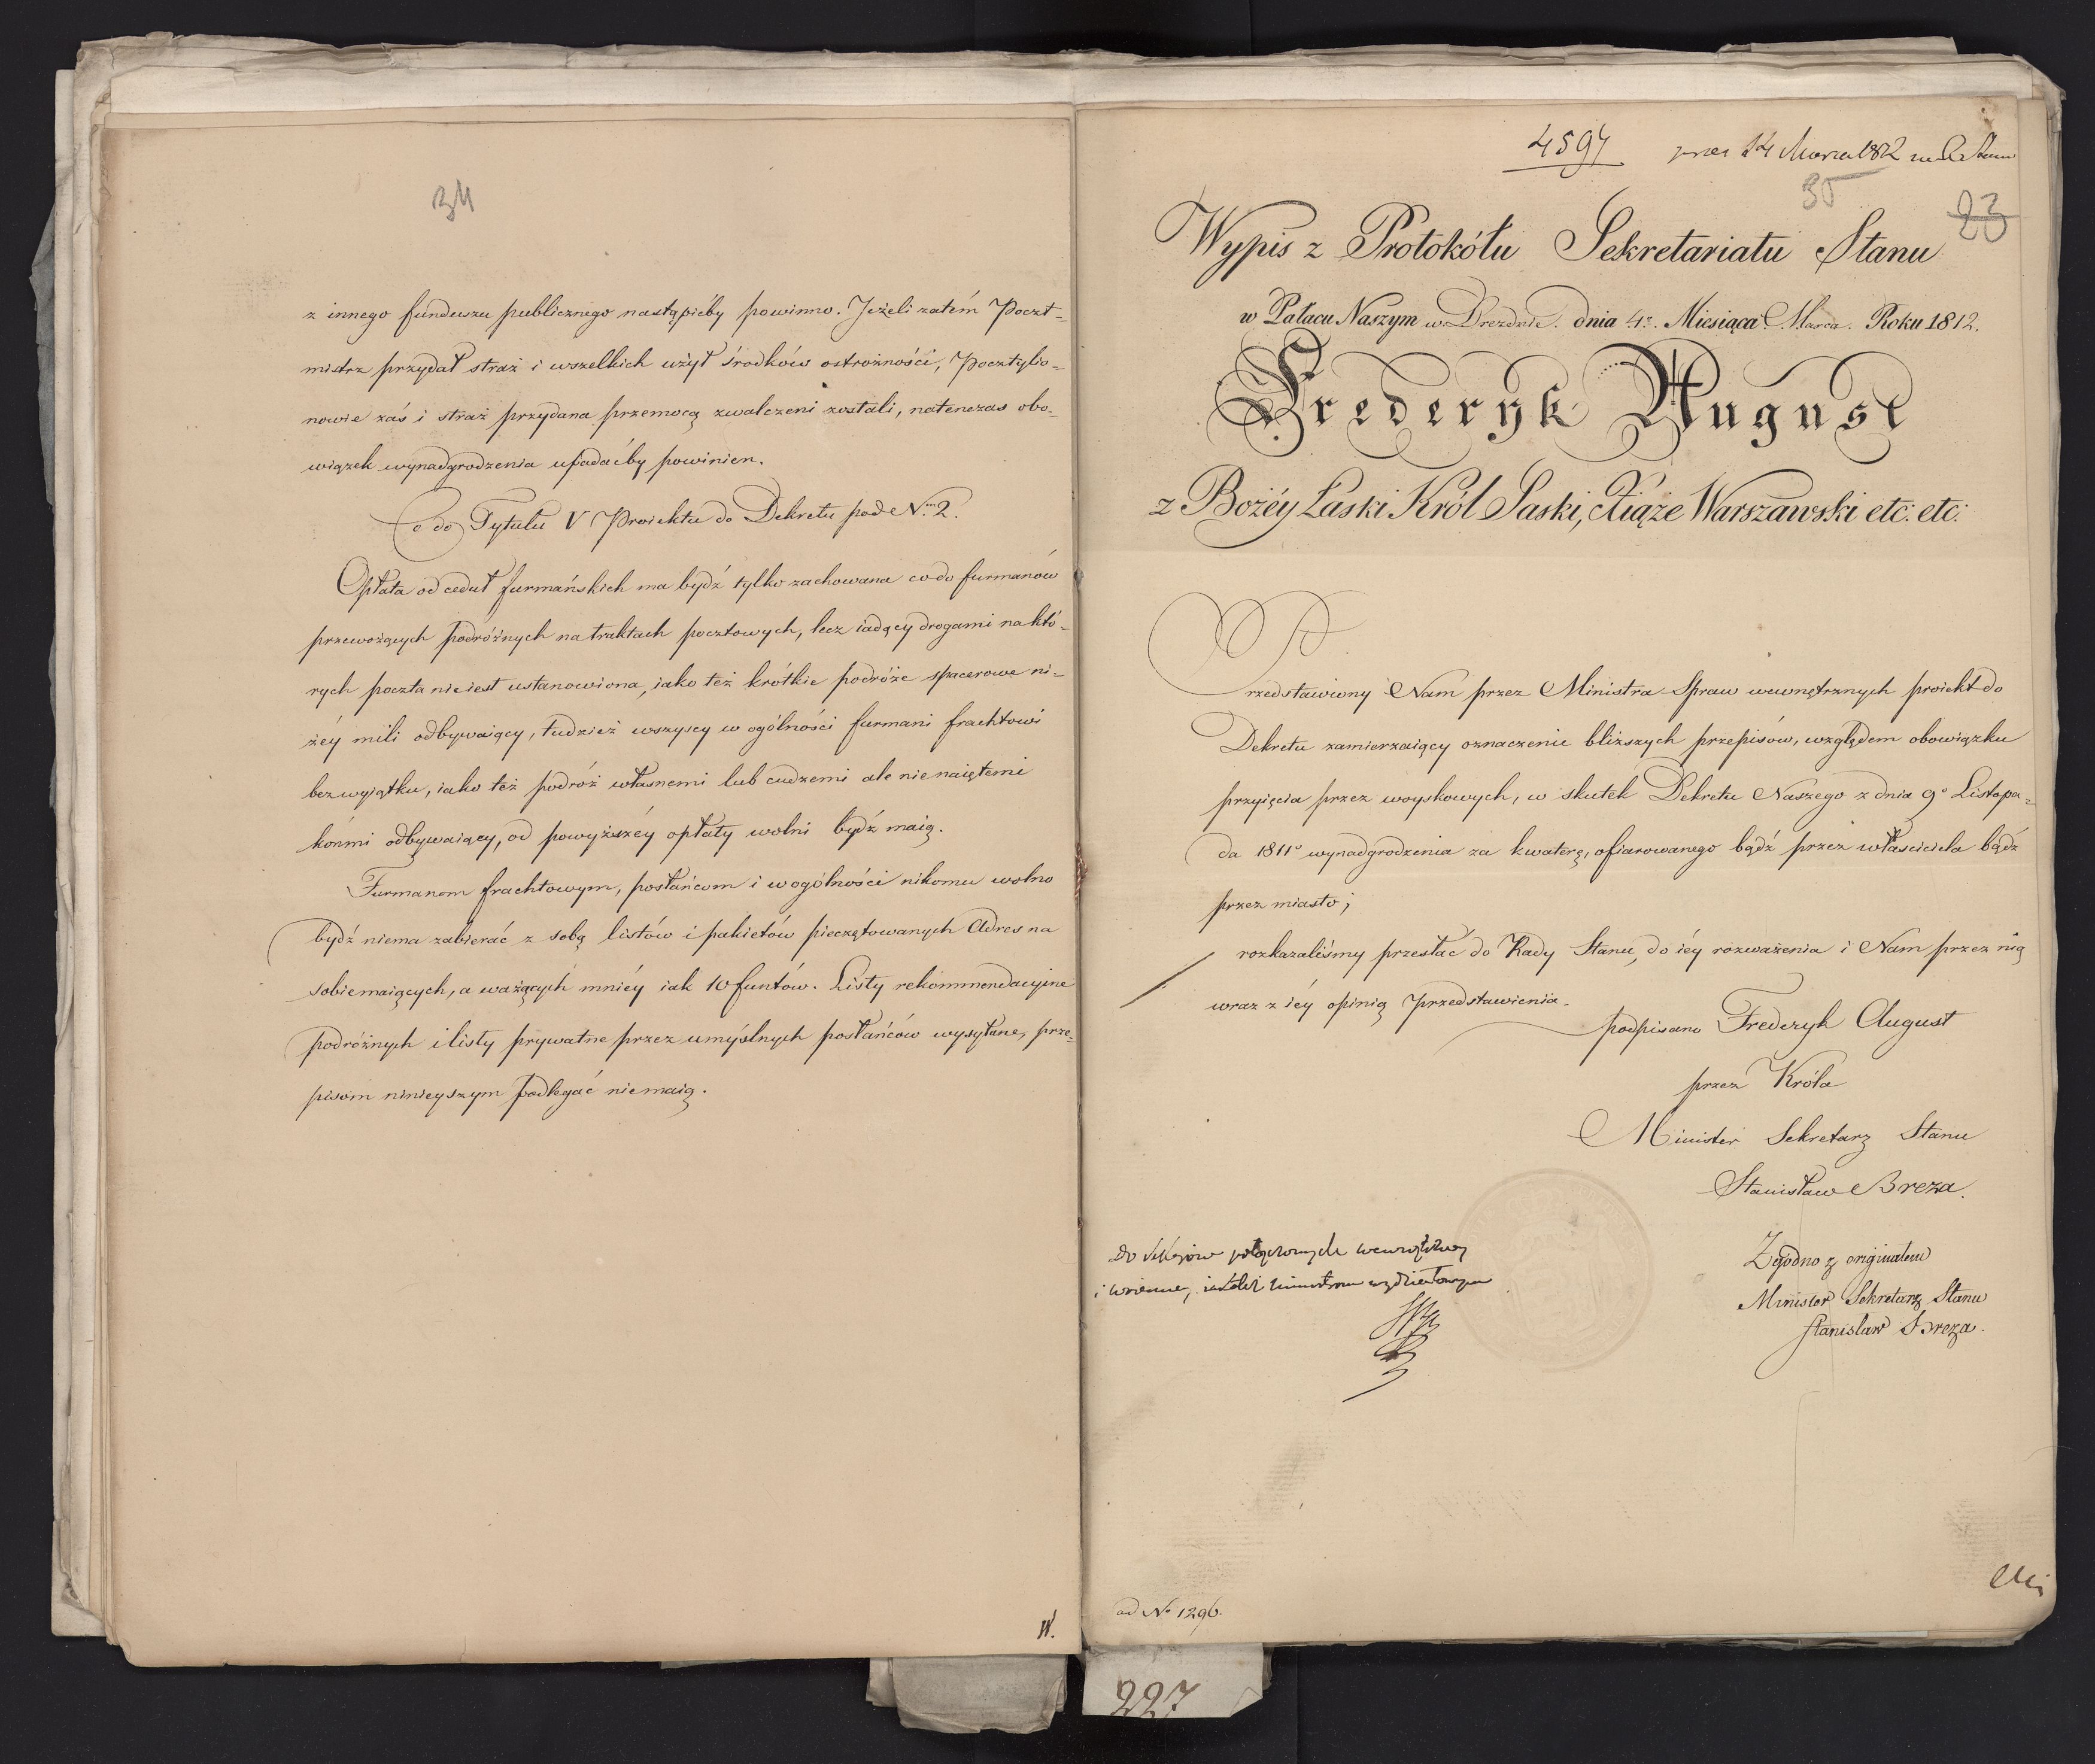 34
z innego funduszu publicznego nastąpićby powinno. Jeżeli zatém Poczt-
mistrz przydał straż i wszelkich użył środków ostrożności, Pocztylio-
nowie zaś i straż przydana przemocą zwalczeni zostali, natenczas obo-
wiązek wynadgrodzenia upadaćby powinien.
Co do Tytułu V Proiektu do Dekretu pod N. 2.
Opłata od ceduł furmańskich ma bydź tylko zachowana co do furmanów
przewożących podróżnych na traktach pocztowych, lecz iadący drogami na któ-
rych poczta nie iest ustanowiona, iako też krótkie podróże spacerowe ni-
żéy mili odbywaiący, tudzież wszyscy w ogólności furmani frachtowi
bez wyiątku, iako też podróż własnemi lub cudzemi ale nie naiętemi
końmi odbywaiący, od powyższéy opłaty wolni bydź maią.
Furmanom frachtowym, posłańcom i w ogólności nikomu wolno
bydź niema zabierać z sobą listów i pakietów pieczętowanych Adres na
sobie maiących, a ważących mniéy iak 10 funtów. Listy rekommendacyine
podróżnych i listy prywatne przez umyślnych posłańców wysyłane, prze-
pisom ninieyszym podlegać niemaią.
W.
4594 14 Marca 1812
35
23
Wypis z Protokółu Sekretariatu Stanu
w Pałacu Naszym w Dreznie. dnia 4. Miesiąca Marca. Roku 1812.
Frederyk August
z Bożéy Łaski Król Saski, Xiąże Warszawski etc. etc.
Przedstawiony Nam przez Ministra Spraw wewnętrznych proiekt do
Dekretu zamierzaiący oznaczenie bliższych przepisów, względem obowiązku
przyięcia przez woyskowych, w skutek Dekretu Naszego z dnia 9° Listopa-
da 1811° wynadgrodzenia za kwaterę, ofiarowanego bądź przez właściciela bądź
przez miasto;
rozkazaliśmy przesłać do Rady Stanu, do iéy rozważenia i Nam przez nią
wraz z iéy opinią Przedstawienia.
podpisano Frederyk August
przez Króla
Minister Sekretarz Stanu
Stanisław Breza.
Zgodno z originałem
Minister Sekretarz Stanu
Stanislaw Breza.
Do
i
ad No 1296.
227